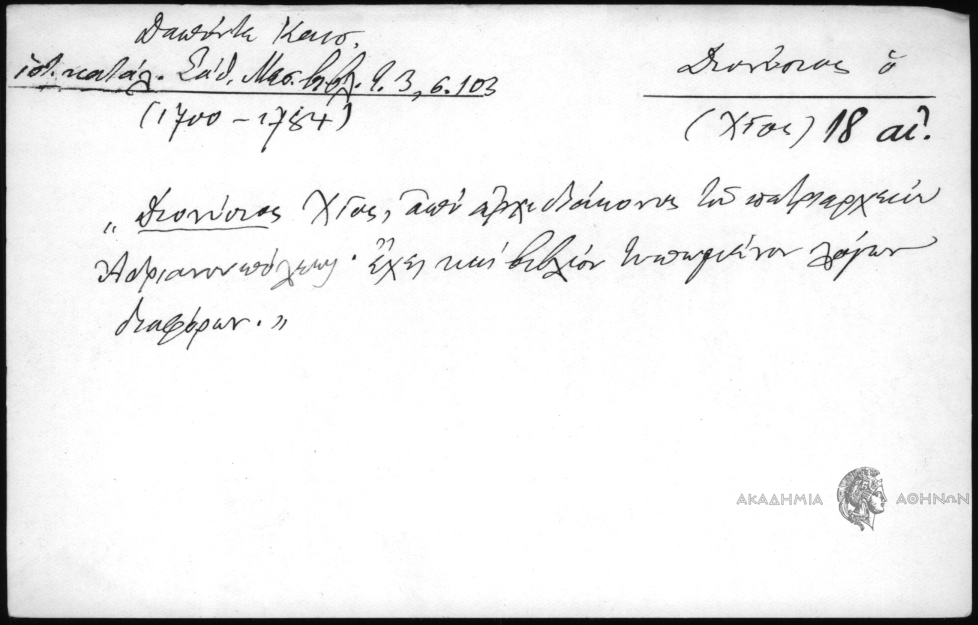 Δαπόντε Καισ.
ἱστ. κατάλ. Σάθ. Μεσ. βιβλ. τ. 3, σ. 103
(1700 – 1784)
Διονύσιος ὁ
(Χῖος) 18 αἰ.
„Διονύσιος Χῖος, ἀπό ἀρχιδιάκονος τοῦ πατριαρχείου
Ἀδριανουπόλεως. Ἔχει καί βιβλίον τυπωμένον λόγων
διαφόρων."
ΑΚΑΔΗΜΙΑ ΑΘΗΝΩΝ